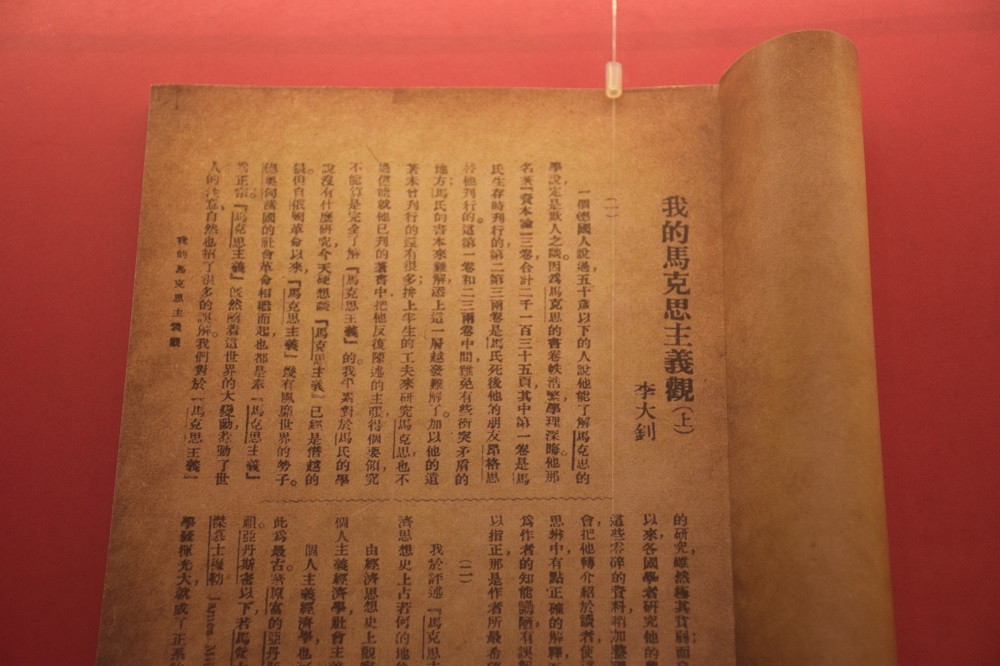 我的馬克思主義觀(上)
李大釗
(一)
一個德國人說過,五十歲以下的人說他能了解馬克思的
學說,定是欺人之談。因爲馬克思的書卷帙浩繁,學理深晦。他那
名著『資本論』三卷,合計二千一百三十五頁,其中第一卷是馬
氏生存時刊行的,第二第三兩卷是馬氏死後他的朋友昂格思
替他刊行的。這第一卷和二三兩卷中間,難免有些衝突矛盾的
地方,馬氏的書本來難解,添上這一層越發難解了。加以他的遺
著未曾刊行的還有很多,拚上半生的工夫來研究馬克思,也不
過僅能就他已刊的著書中,把他反復陳述的主張得個要領,究
不能算是完全了解『馬克思主義』的。我平素對於馬氏的學
說沒有什麽研究,今天硬想談『馬克思主義』已經是僭越的
很。但自俄國革命以來,『馬克思主義』幾有風靡世界的勢子。
德奧匈諸國的社會革命相繼而起,也都是奉『馬克思主義』
爲正宗。『馬克思主義』既然隨着這世界的大變動,惹動了世
人的注意,自然也招了很多的誤解。我們對於『馬克思主義』
我的馬克思主義觀
的研究,雖然極其貧弱,而自
以來,各國學者研究他的
這些零碎的資料,稍加整理
會,把他轉介紹於讀者,使這
思辨中,有點正確的解釋
爲作者的知能譾陋,有誤解
以指正,那是作者所最希
(二)
我於評述『馬克思主
濟思想史上占若何的地位
由經濟思想史上觀察
個人主義經濟學,社會主
個人主義經濟學,也
此爲最古。著原富的亞丹
祖。亞丹斯密以下,若馬
傑慕士穆勒 (James Mi
學發揮光大,就成了正系